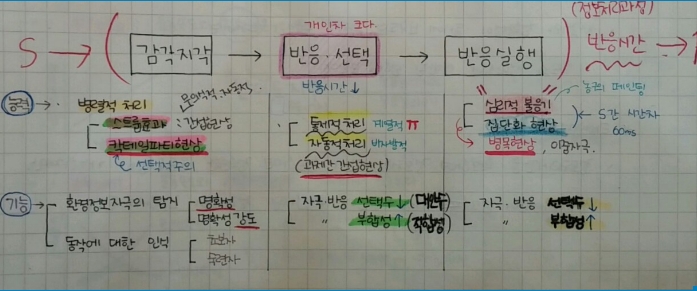 (정보처리과정)
개인차 크다.
S → ( 감각지각 → 반응·선택 → 반응실행 ) 반응시간 →
반응시간↓
능력 → · 병렬적 처리
스트룹효과 : 간섭현상
칵테일파티현상
선택적주의
통제적처리 계열적
자동적처리 병렬적
(과제간 간섭현상)
심리적 불응기
집단화 현상
S간 시간차
60ms
병목현상, 이중자극.
기능 → 환경정보자극의 탐지 명확성
명확성 강도
동작에 대한 인식 초보자
숙련자
자극·반응 선택수↓ (대안수)
〃 부합성↑ (적합성)
자극·반응 선택수↓
〃 부합성↑